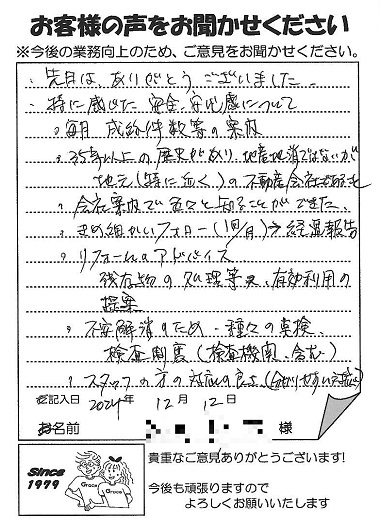 お客様の声をお聞かせください
※今後の業務向上のため、ご意見をお聞かせください。
・先日は、ありがとうございました
・特に感じた安全、安心感について
・毎月 成約件数等の案内
・35年以上の歴史があり、地産地消ではないが
地元(特に近く)の不動産会社である
・会社案内で色々と知ることができた、
・きめ細かいフォロー(1回/月)→経過報告
・リフォームのアドバイス
残存物の処理等、有効利用の
提案
・不安解消のため、種々の点検、
検査制度(検査機関、含む)
・スタッフの方の対応の良さ、
ご記入日 2024年 12月 12日
お名前 様
Since
1979
Grace
Grace
貴重なご意見ありがとうございます!
今後も頑張りますので
よろしくお願いいたします